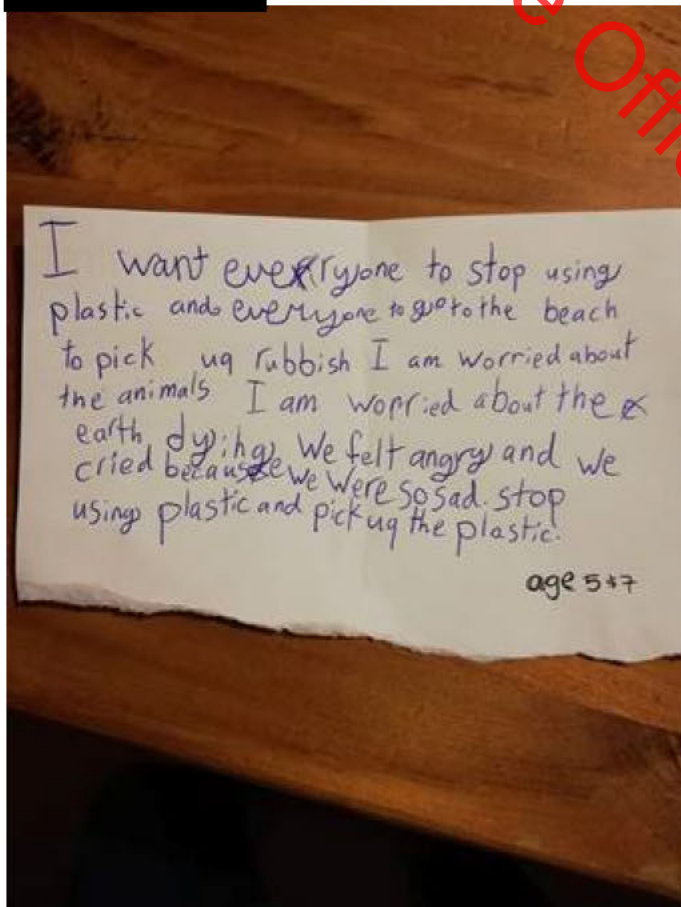 e Offi
I want everyone to stop using
plastic and everyone to go to the beach
to pick uq rubbish I am worried about
the animals I am worried about the
earth dying. We felt angry and we
cried because we were so sad. stop
using plastic and pick uq the plastic.
age 5+7